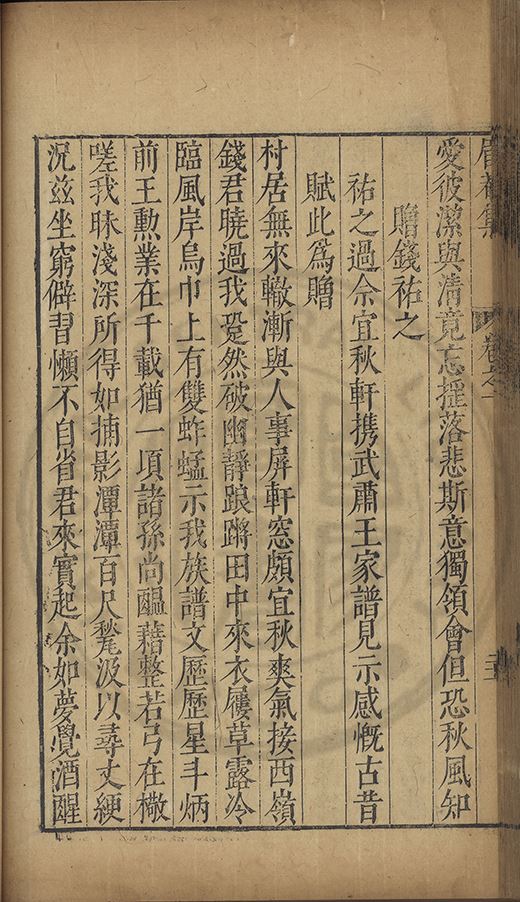 卷之一
愛彼潔與清竟忘搖落悲斯意獨領會但恐秋風知
贈錢祐之
祐之過余宜秋軒携武肅王家譜見示感慨古昔
賦此為贈
村居無來轍漸與人事屏軒窓頗宜秋爽氣接西嶺
錢君曉過我跫然破幽靜踉蹡田中來衣屨草露冷
臨風岸烏巾上有雙蚱蜢示我族譜文歷歷星斗炳
前王勲業在千載猶一項諸孫尚醞藉整若弓在檠
嗟我昧淺深所得如捕影潭潭百尺甃汲以尋丈綆
況兹坐窮僻習懶不自省君來實起余如夢覺酒醒